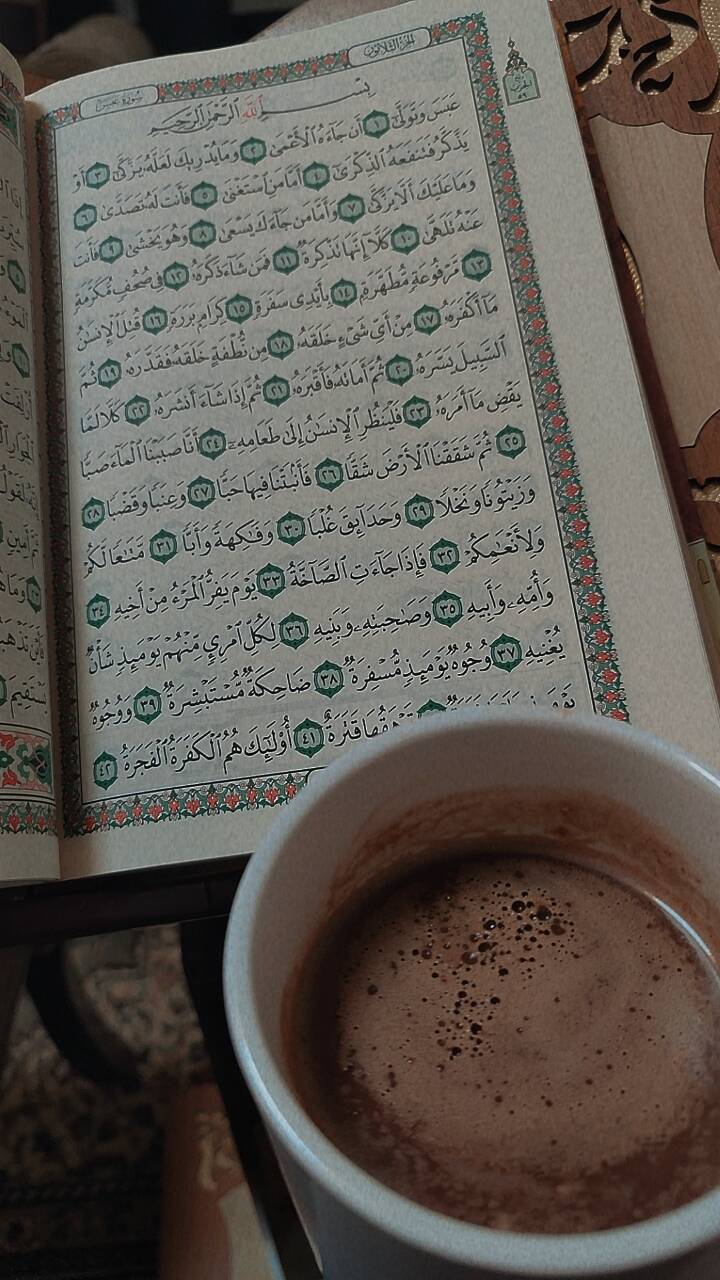 سورة عبس
الجزء الثلاثون
بسم الله الرحمن الرحيم
عَبَسَ وَتَوَلَّىٰٓ ١ أَن جَآءَهُ ٱلْأَعْمَىٰ ٢ وَمَا يُدْرِيكَ لَعَلَّهُۥ يَزَّكَّىٰٓ ٣ أَوْ
يَذَّكَّرُ فَتَنفَعَهُ ٱلذِّكْرَىٰٓ ٤ أَمَّا مَنِ ٱسْتَغْنَىٰ ٥ فَأَنتَ لَهُۥ تَصَدَّىٰ ٦
وَمَا عَلَيْكَ أَلَّا يَزَّكَّىٰ ٧ وَأَمَّا مَن جَآءَكَ يَسْعَىٰ ٨ وَهُوَ يَخْشَىٰ ٩ فَأَنتَ
عَنْهُ تَلَهَّىٰ ١٠ كَلَّآ إِنَّهَا تَذْكِرَةٌ ١١ فَمَن شَآءَ ذَكَرَهُۥ ١٢ فِى صُحُفٍ مُّكَرَّمَةٍ
١٣ مَّرْفُوعَةٍ مُّطَهَّرَةٍۭ ١٤ بِأَيْدِى سَفَرَةٍ ١٥ كِرَامٍۭ بَرَرَةٍ ١٦ قُتِلَ ٱلْإِنسَٰنُ
مَآ أَكْفَرَهُۥ ١٧ مِنْ أَىِّ شَىْءٍ خَلَقَهُۥ ١٨ مِن نُّطْفَةٍ خَلَقَهُۥ فَقَدَّرَهُۥ ١٩ ثُمَّ
ٱلسَّبِيلَ يَسَّرَهُۥ ٢٠ ثُمَّ أَمَاتَهُۥ فَأَقْبَرَهُۥ ٢١ ثُمَّ إِذَا شَآءَ أَنشَرَهُۥ ٢٢ كَلَّا لَمَّا
يَقْضِ مَآ أَمَرَهُۥ ٢٣ فَلْيَنظُرِ ٱلْإِنسَٰنُ إِلَىٰ طَعَامِهِۦٓ ٢٤ أَنَّا صَبَبْنَا ٱلْمَآءَ صَبًّا
٢٥ ثُمَّ شَقَقْنَا ٱلْأَرْضَ شَقًّا ٢٦ فَأَنۢبَتْنَا فِيهَا حَبًّا ٢٧ وَعِنَبًا وَقَضْبًا ٢٨
وَزَيْتُونًا وَنَخْلًا ٢٩ وَحَدَآئِقَ غُلْبًا ٣٠ وَفَٰكِهَةً وَأَبًّا ٣١ مَّتَٰعًا لَّكُمْ
وَلِأَنْعَٰمِكُمْ ٣٢ فَإِذَا جَآءَتِ ٱلصَّآخَّةُ ٣٣ يَوْمَ يَفِرُّ ٱلْمَرْءُ مِنْ أَخِيهِ ٣٤
وَأُمِّهِۦ وَأَبِيهِ ٣٥ وَصَٰحِبَتِهِۦ وَبَنِيهِ ٣٦ لِكُلِّ ٱمْرِئٍ مِّنْهُمْ يَوْمَئِذٍ شَأْنٌ
يُغْنِيهِ ٣٧ وُجُوهٌ يَوْمَئِذٍ مُّسْفِرَةٌ ٣٨ ضَاحِكَةٌ مُّسْتَبْشِرَةٌ ٣٩ وَوُجُوهٌ
تَرْهَقُهَا قَتَرَةٌ ٤١ أُو۟لَٰٓئِكَ هُمُ ٱلْكَفَرَةُ ٱلْفَجَرَةُ ٤٢